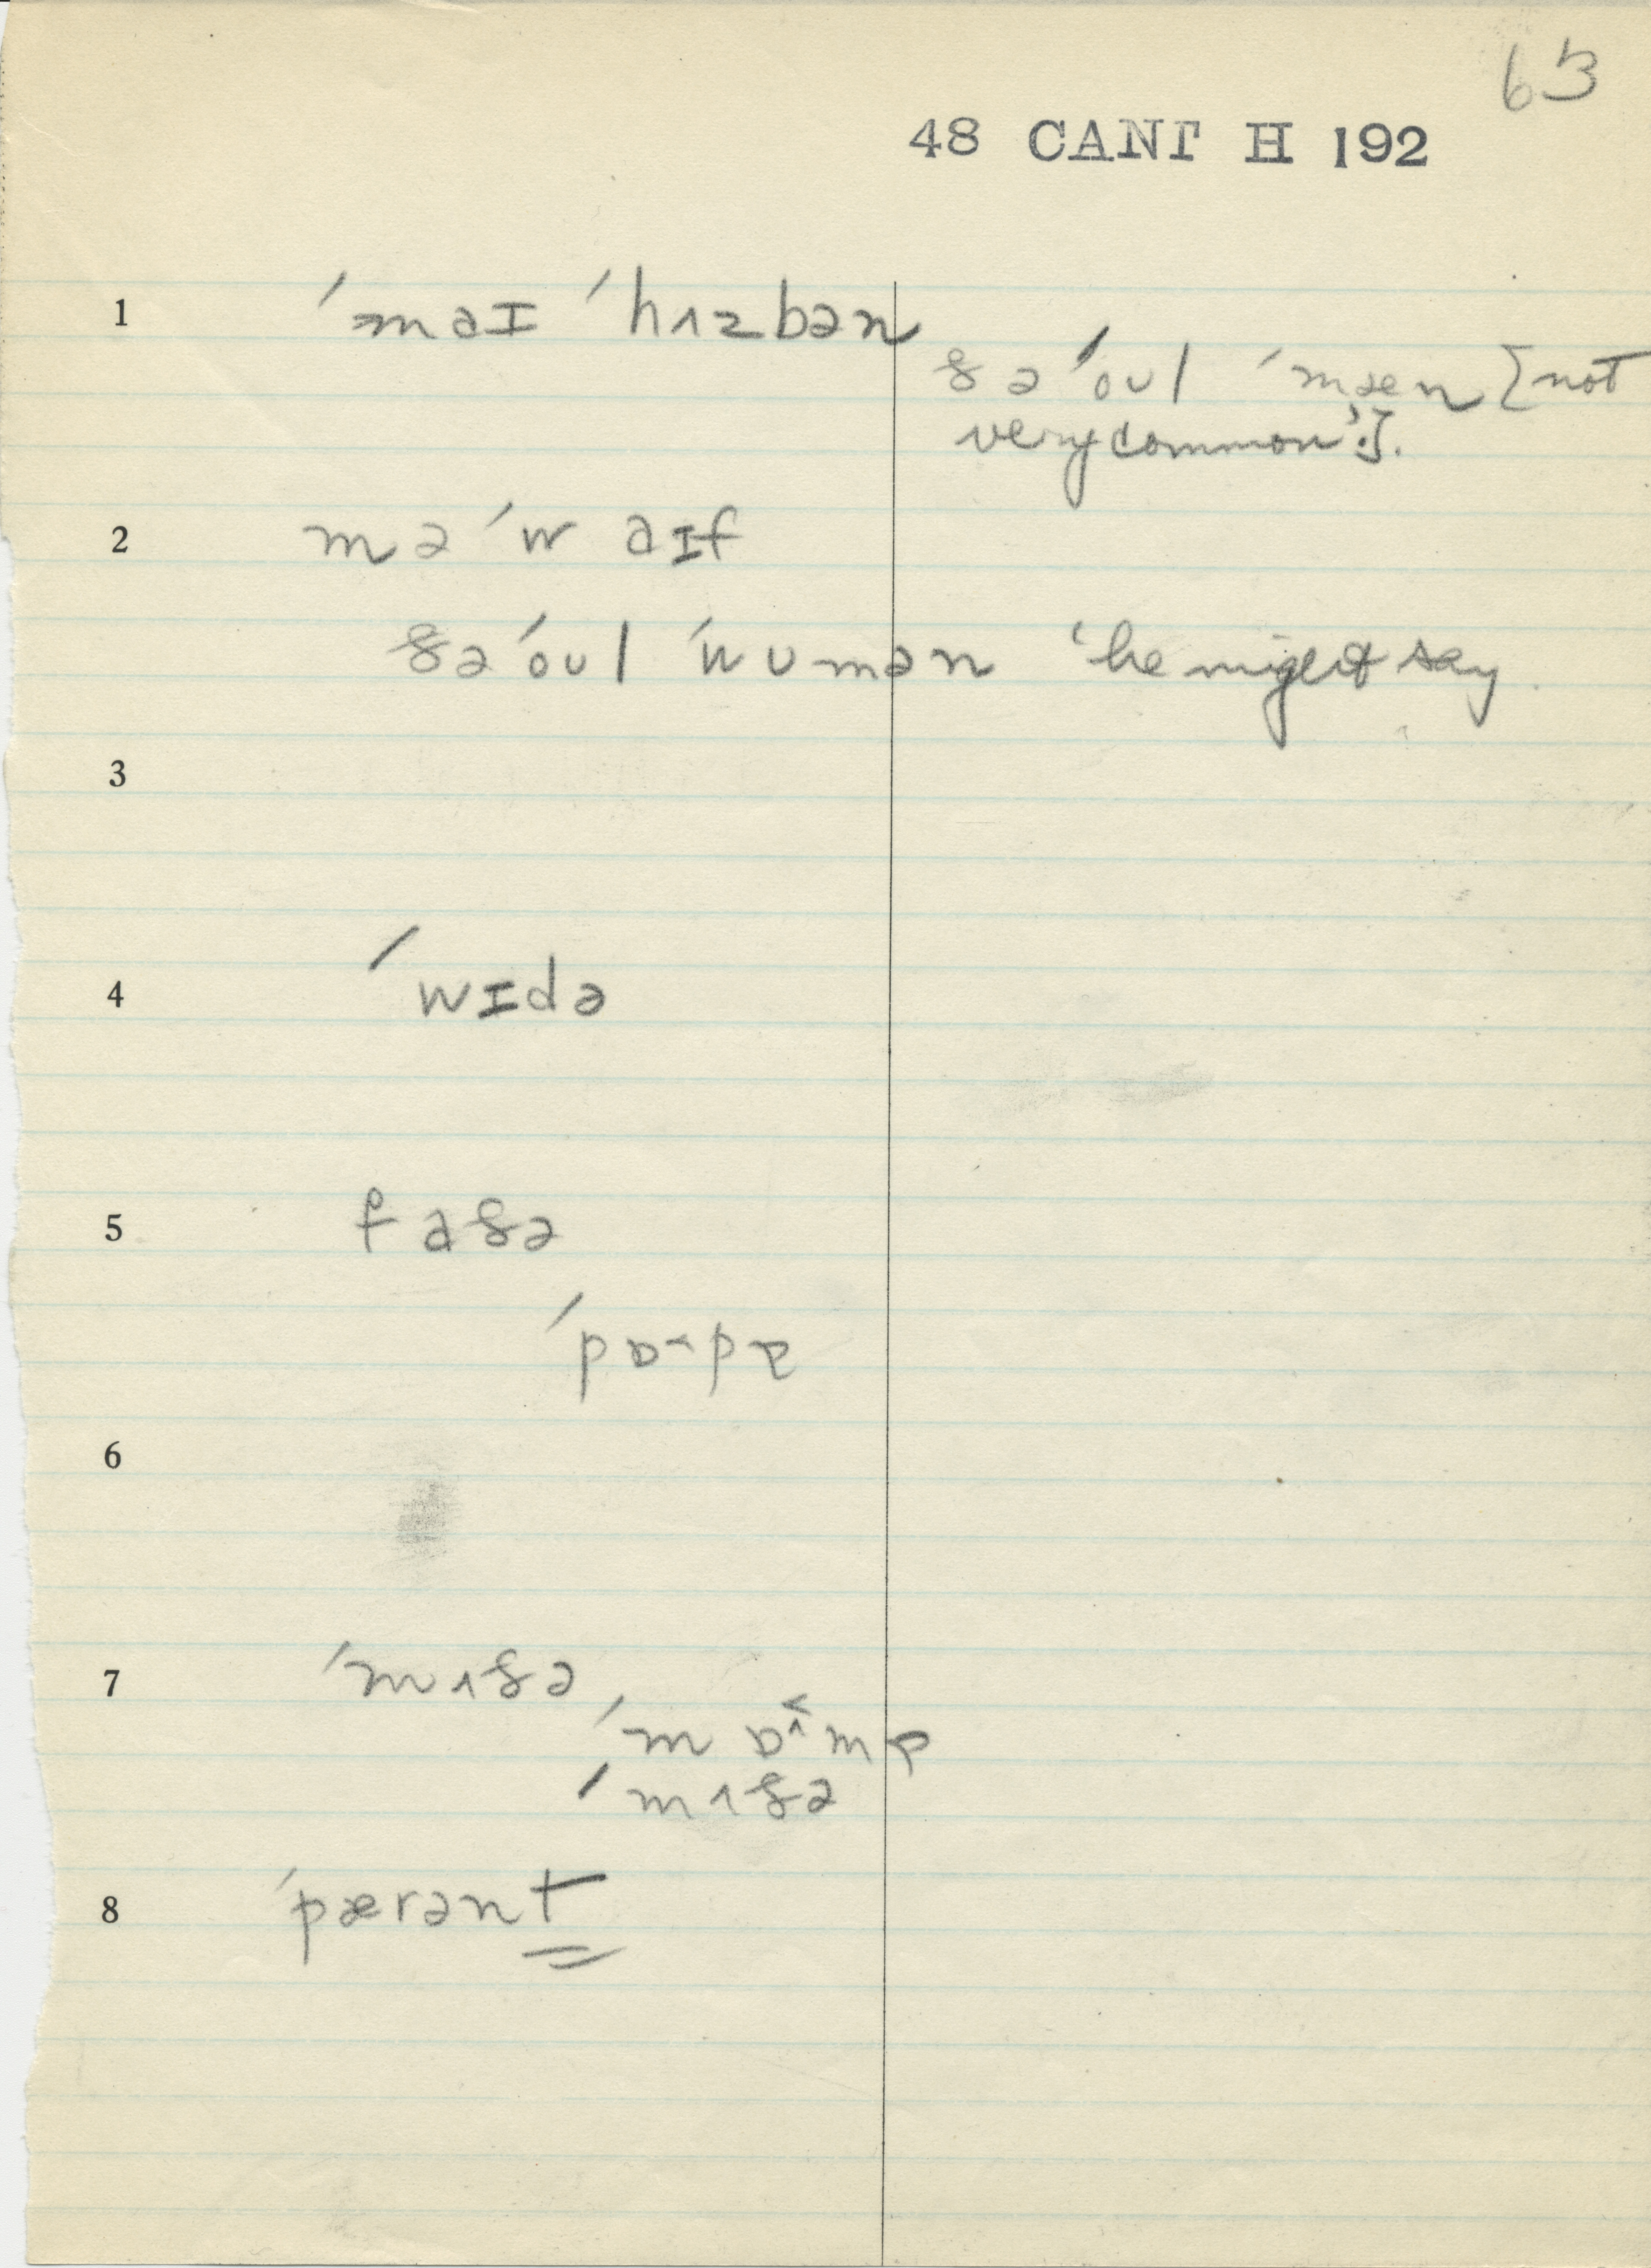 63
48 CANT H 192
1 ˈmaɪ ˈhʌzbən
ðə ˈoʊl ˈmæn [not
very common'].
2 mə ˈwaɪf
ðə ˈoʊl ˈwʊmən 'he might say
3
4 ˈwɪdə
5 faðə
ˈpɒ˂pɐ
6
7 ˈmʌðə
ˈmɒ˂mɐ
ˈmʌðə
8 ˈpærənt